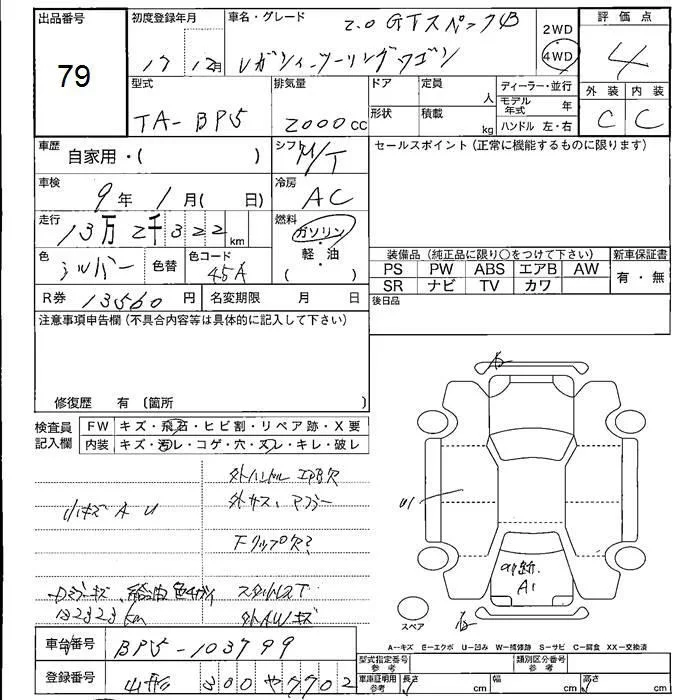 出品番号
79
初度登録年月
17 12月
車名・グレード
2.0 GTスペックB
レガシィツーリングワゴン
2WD
4WD
評価点
4
外装 内装
C C
型式
TA-BP5
排気量
2000cc
ドア
形状
定員
人
積載
kg
ディーラー・並行
モデル年式 年
ハンドル 左・右
車歴
自家用・( )
シフト
M/T
セールスポイント (正常に機能するものに限ります)
車検
9年 1月( 日)
冷房
AC
走行
13万2千322km
燃料
ガソリン
・
軽・油
( )
色
シルバー
色替
色コード
45A
装備品 (純正品に限り○をつけて下さい)
PS PW ABS エアB AW
SR ナビ TV カワ
新車保証書
有・無
R券 13560円
名変期限 月 日
後日品
注意事項申告欄 (不具合内容等は具体的に記入して下さい)
修復歴 有 (箇所 )
検査員記入欄
FW キズ・飛石・ヒビ割・リペア跡・X要
内装 キズ・汚レ・コゲ・穴・スレ・キレ・破レ
外ハンドル エアB欠
小キズ A U
外サス、マフラー
132323km
外AWキズ
U1
A1
スペア
A--キズ E--エクボ U--凹み W--補修跡 S--サビ C--腐食 XX--交換済
車台番号
BP5-103799
登録番号
山形 300 や 7702
型式指定番号
参考
類別区分番号
参考
車庫証明用
参考
長さ cm
幅 cm
高さ cm